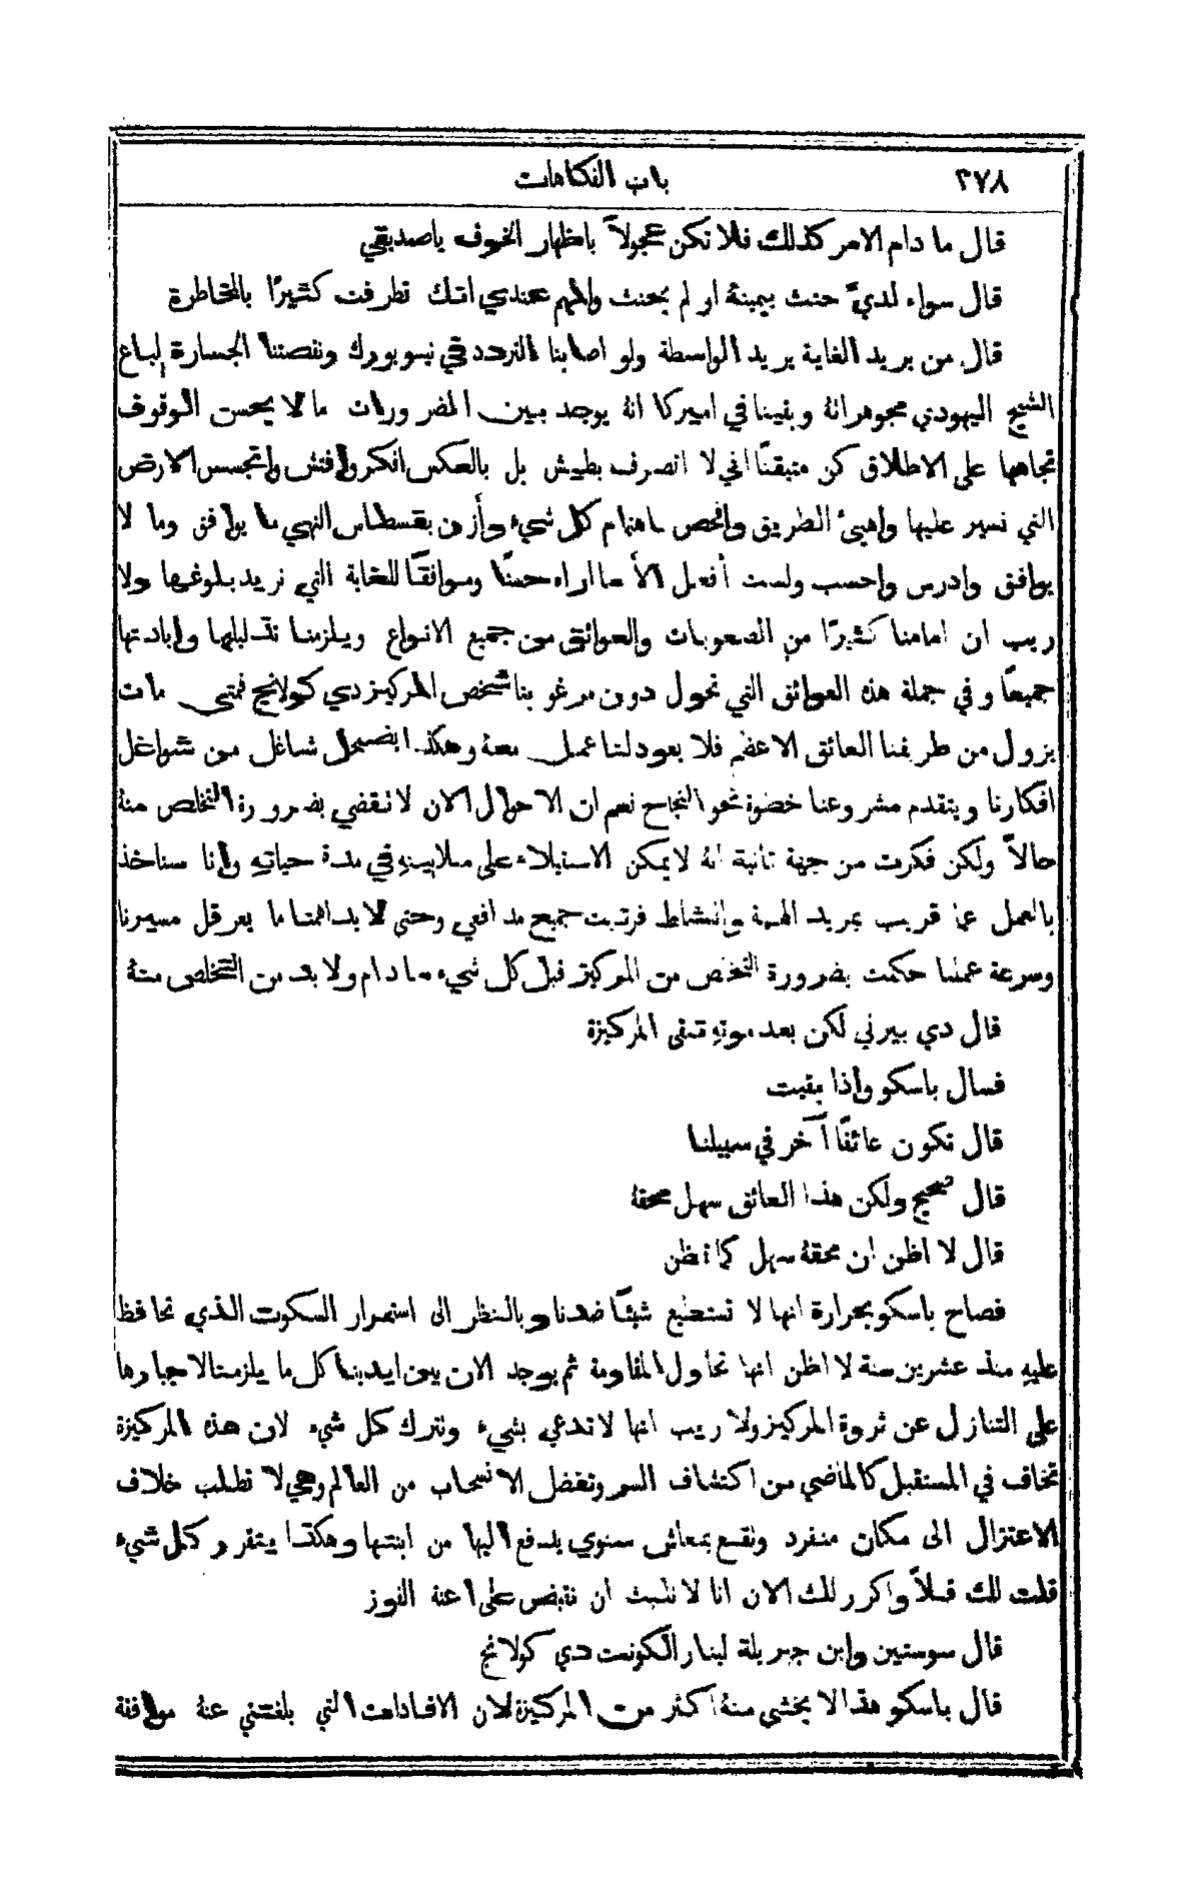 ٣٧٨
باب الفكاهات
قال ما دام الامر كذلك فلا تكن عجولاً باظهار الخوف ياصديقي
قال سواء لديَّ حنث بيمينهِ او لم يحنث والمهم عندي انك تطرفت كثيرًا بالمخاطرة
قال من يريد الغاية يريد الواسطة ولو اصابنا التردد في نيويورك ونقصتنا الجسارة لباع
الشيخ اليهودي مجوهراتهُ وبقينا في اميركا انهُ يوجد بين المضرورات ما لا يحسن الوقوف
تجاهها على الاطلاق كن متيقنًا اني لا اتصرف بطيش بل بالعكس افكر وافتش واتجسس الارض
التي نسير عليها واهيئ الطريق وافحص باهتمام كل شيء وأزن بقسطاس النهي ما يوافق وما لا
يوافق وادرس واحسب ولست أفعل الأ ما اراه حسنًا وموافقًا للغاية التي نريد بلوغها ولا
ريب ان امامنا كثيرًا من الصعوبات والعوائق من جميع الانواع ويلزمنا تذليلها وابادتها
جميعًا وفي جملة هذه العوائق التي تحول دون مرغوبنا شخص المركيز دي كولانج فمتى مات
يزول من طريقنا العائق الاعظم فلا يعود لنا عمل معهُ وهكذا يضمحل شاغل من شواغل
افكارنا ويتقدم مشروعنا خطوة نحو النجاح نعم ان الاحوال الان لا تقضي بضرورة التخلص منهُ
حالاً ولكن فكرت من جهة ثانية انهُ لا يمكن الاستيلاء على ملايينهِ في مدة حياتهِ وانا سناخذ
بالعمل عما قريب بمزيد الهمة والنشاط فرتبت جميع مدافعي وحتى لا يداهمنا ما يعرقل مسيرنا
وسرعة عملنا حكمت بضرورة التخلص من المركيز قبل كل شيء ما دام ولا بد من التخلص منهُ
قال دي بيرني لكن بعد موتهِ تبقى المركيزة
فسال باسكو واذا بقيت
قال تكون عائقًا آخر في سبيلنا
قال صحيح ولكن هذا العائق سهل محقهُ
قال لا اظن ان محقهُ سهل كما تظن
فصاح باسكو بحرارة انها لا تستطيع شيئًا ضدنا وبالنظر الى استمرار السكوت الذي تحافظ
عليهِ منذ عشرين سنة لا اظن انها تحاول المقاومة ثم يوجد الان بين ايدينا كل ما يلزمنا لاجبارها
على التنازل عن ثروة المركيز ولا ريب انها لا تدعي بشيء وتترك كل شيء لان هذه المركيزة
تخاف في المستقبل كالماضي من اكتشاف السر وتفضل الانسحاب من العالم وهي لا تطلب خلاف
الاعتزال الى مكان منفرد وتقنع بمعاش سنوي يدفع اليها من ابنتها وهكذا يتقرر كل شيء
قلت لك قبلاً واكرر لك الان انا لا نلبث ان نقبض على اعنة الفوز
قال سوستين وابن جبريلة لينار الكونت دي كولانج
قال باسكو هذا لا يخشى منهُ اكثر من المركيزة لان الافادات التي بلغتني عنهُ موافقة